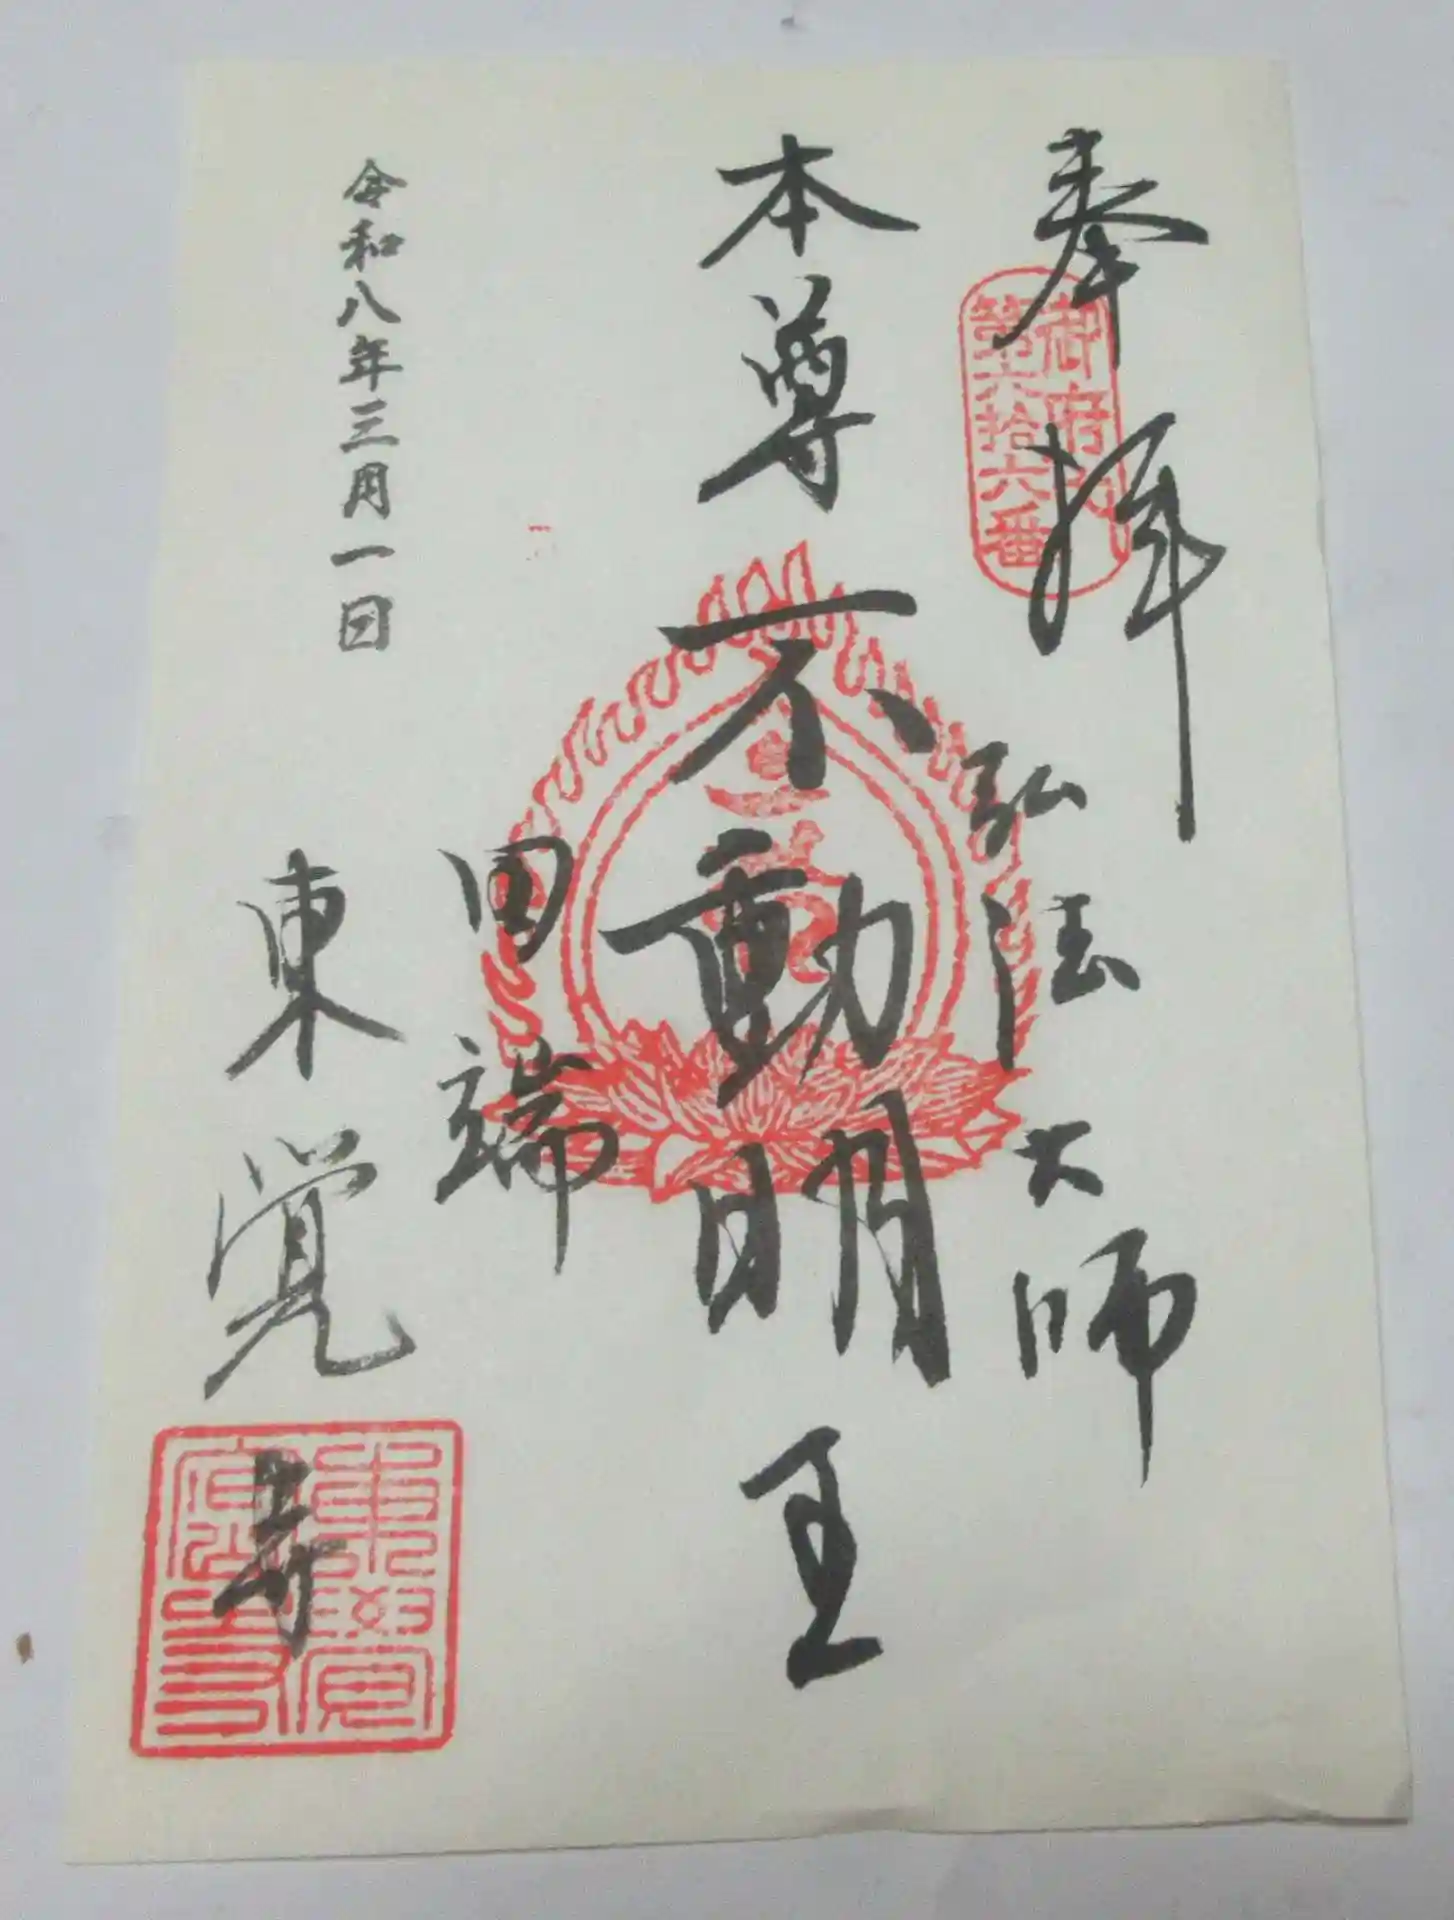 奉拝
御府内
第六拾六番
弘法大師
本尊 不動明王
田端
東覚寺
令和八年三月一日
東覺寺